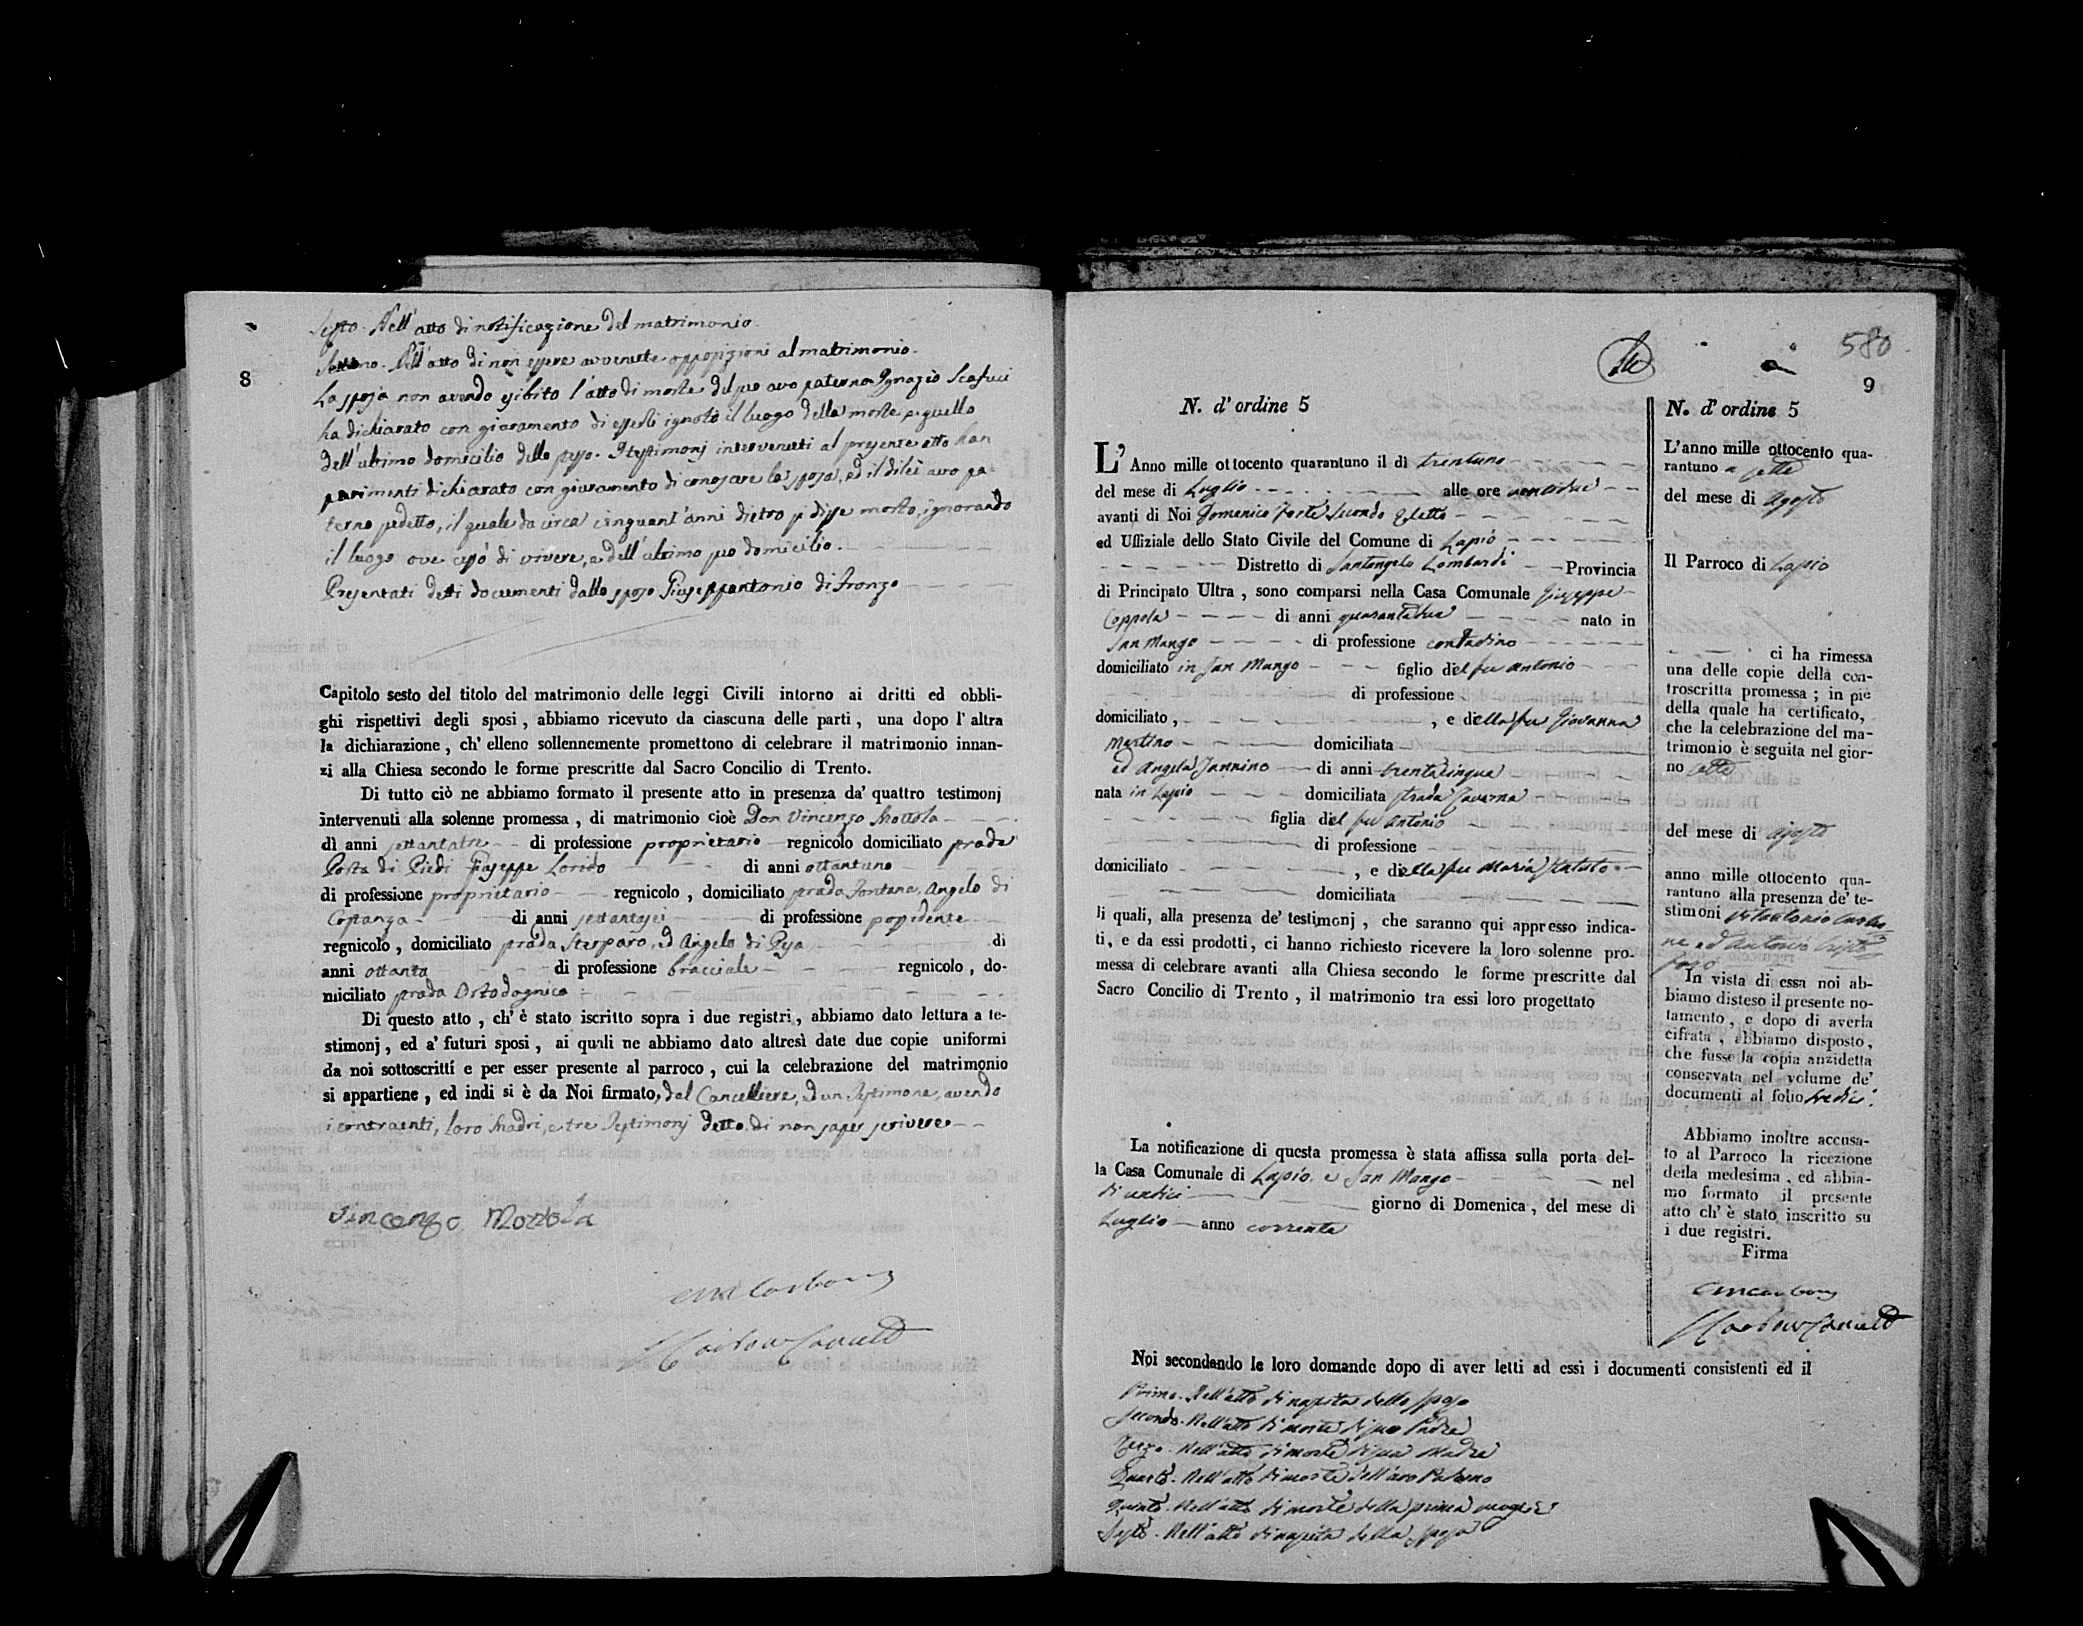 8
Sesto. Nell'atto di notificazione del matrimonio.
Settimo. Nell'atto di non essere avvenute opposizioni al matrimonio.
La sposa non avendo esibito l'atto di morte del suo avo paterno Ignazio Scafuci
ha dichiarato con giuramento di esserli ignoto il luogo della morte, e quello
dell'ultimo domicilio dello stesso. I testimonj intervenuti al presente atto han
parimenti dichiarato con giuramento di conoscere la sposa, ed il dilei avo pa-
terno sudetto, il quale da circa cinquant'anni dietro si disse morto, ignorando
il luogo ove cessò di vivere, e dell'ultimo suo domicilio.
Presentati detti documenti dallo sposo Giuseppantonio di Fronzo
Capitolo sesto del titolo del matrimonio delle leggi Civili intorno ai dritti ed obbli-
ghi rispettivi degli sposi, abbiamo ricevuto da ciascuna delle parti, una dopo l'altra
la dichiarazione, ch'elleno sollennemente promettono di celebrare il matrimonio innan-
zi alla Chiesa secondo le forme prescritte dal Sacro Concilio di Trento.
Di tutto ciò ne abbiamo formato il presente atto in presenza da' quattro testimonj
intervenuti alla solenne promessa, di matrimonio cioè Don Vincenzo Mottola
di anni settantatre di professione proprietario regnicolo domiciliato strada
Posta di Piedi Giuseppe Lorido di anni ottantuno
di professione proprietario regnicolo, domiciliato strada Fontana, Angelo di
Costanza di anni settantasei di professione possidente
regnicolo, domiciliato strada Sterparo, ed Angelo di di
anni ottanta di professione bracciale regnicolo, do-
miciliato strada
Di questo atto, ch'è stato iscritto sopra i due registri, abbiamo dato lettura a te-
stimonj, ed a' futuri sposi, ai quali ne abbiamo dato altresì date due copie uniformi
da noi sottoscritti e per esser presente al parroco, cui la celebrazione del matrimonio
si appartiene, ed indi si è da Noi firmato, dal Cancelliere, ed un Testimone, avendo
i contraenti, loro Madri, e tre Testimonj detto di non saper scrivere
Vincenzo Mottola
580
9
N. d'ordine 5
L'Anno mille ottocento quarantuno il dì trentuno
del mese di Luglio alle ore ventidue
avanti di Noi Domenico Forte Secondo Eletto
ed Uffiziale dello Stato Civile del Comune di Lapio
Distretto di Santangelo Lombardi Provincia
di Principato Ultra, sono comparsi nella Casa Comunale Giuseppe
Coppola di anni quarantadue nato in
San Mango di professione contadino
domiciliato in San Mango figlio del fu Antonio
di professione
domiciliato, , e della fu Giovanna
Martino domiciliata
ed Angela Iannino di anni trentacinque
nata in Lapio domiciliata strada Taverna
figlia del fu Antonio
di professione
domiciliato , e della fu Maria Statuto
domiciliata
li quali, alla presenza de' testimonj, che saranno qui appresso indica-
ti, e da essi prodotti, ci hanno richiesto ricevere la loro solenne pro-
messa di celebrare avanti alla Chiesa secondo le forme prescritte dal
Sacro Concilio di Trento, il matrimonio tra essi loro progettato
La notificazione di questa promessa è stata affissa sulla porta del-
la Casa Comunale di Lapio, e San Mango nel
dì undici giorno di Domenica, del mese di
Luglio anno corrente
Noi secondando le loro domande dopo di aver letti ad essi i documenti consistenti ed il
Primo. Nell'atto di nascita dello sposo
Secondo. Nell'atto di morte di suo Padre
Terzo. Nell'atto di morte di sua Madre
Quarto. Nell'atto di morte dell'avo Paterno
Quinto. Nell'atto di morte della prima moglie
Sesto. Nell'atto di nascita della sposa
N. d'ordine 5
L'anno mille ottocento qua-
rantuno a sette
del mese di Agosto
Il Parroco di Lapio
ci ha rimessa
una delle copie della con-
troscritta promessa; in piè
della quale ha certificato,
che la celebrazione del ma-
trimonio è seguita nel gior-
no sette
del mese di Agosto
anno mille ottocento qua-
rantuno alla presenza de' te-
stimoni Vitantonio Carbo-
ne ed Antonio Cristo
faro
In vista di essa noi ab-
biamo disteso il presente no-
tamento, e dopo di averla
cifrata, abbiamo disposto,
che fusse la copia anzidetta
conservata nel volume de'
documenti al folio tredici.
Abbiamo inoltre accusa-
to al Parroco la ricezione
della medesima, ed abbia-
mo formato il presente
atto ch'è stato inscritto su
i due registri.
Firma